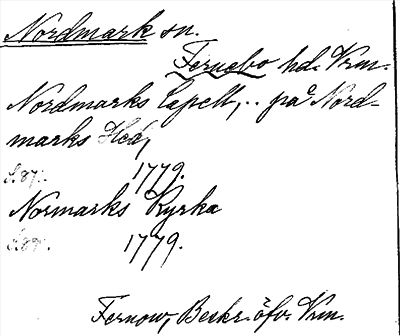 Nordmark sn.
Fernebo hd. Vrm.
Nordmarks Capell, .. på Nord-
marks Hed,
S. 87. 1779.
Normarks Kyrka
S. 89. 1779.
Fernow, Beskr. öfv. Vrm.